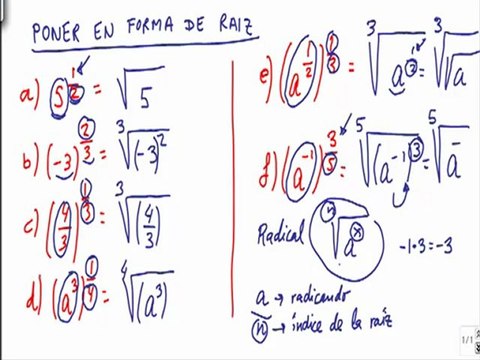 PONER EN FORMA DE RAIZ
a) 5^(1/2) = √5
b) (-3)^(2/3) = ∛(-3)²
c) (4/3)^(1/3) = ∛(4/3)
d) (a³)^(1/4) = ∜(a³)
e) (a^(1/2))^(1/3) = ∛a^(1/2) = ∛√a
f) (a⁻¹)^(3/5) = ⁵√(a⁻¹)³ = ⁵√a⁻
Radical ⁿ√aˣ
-1·3=-3
a → radicando
n → índice de la raíz
1/1